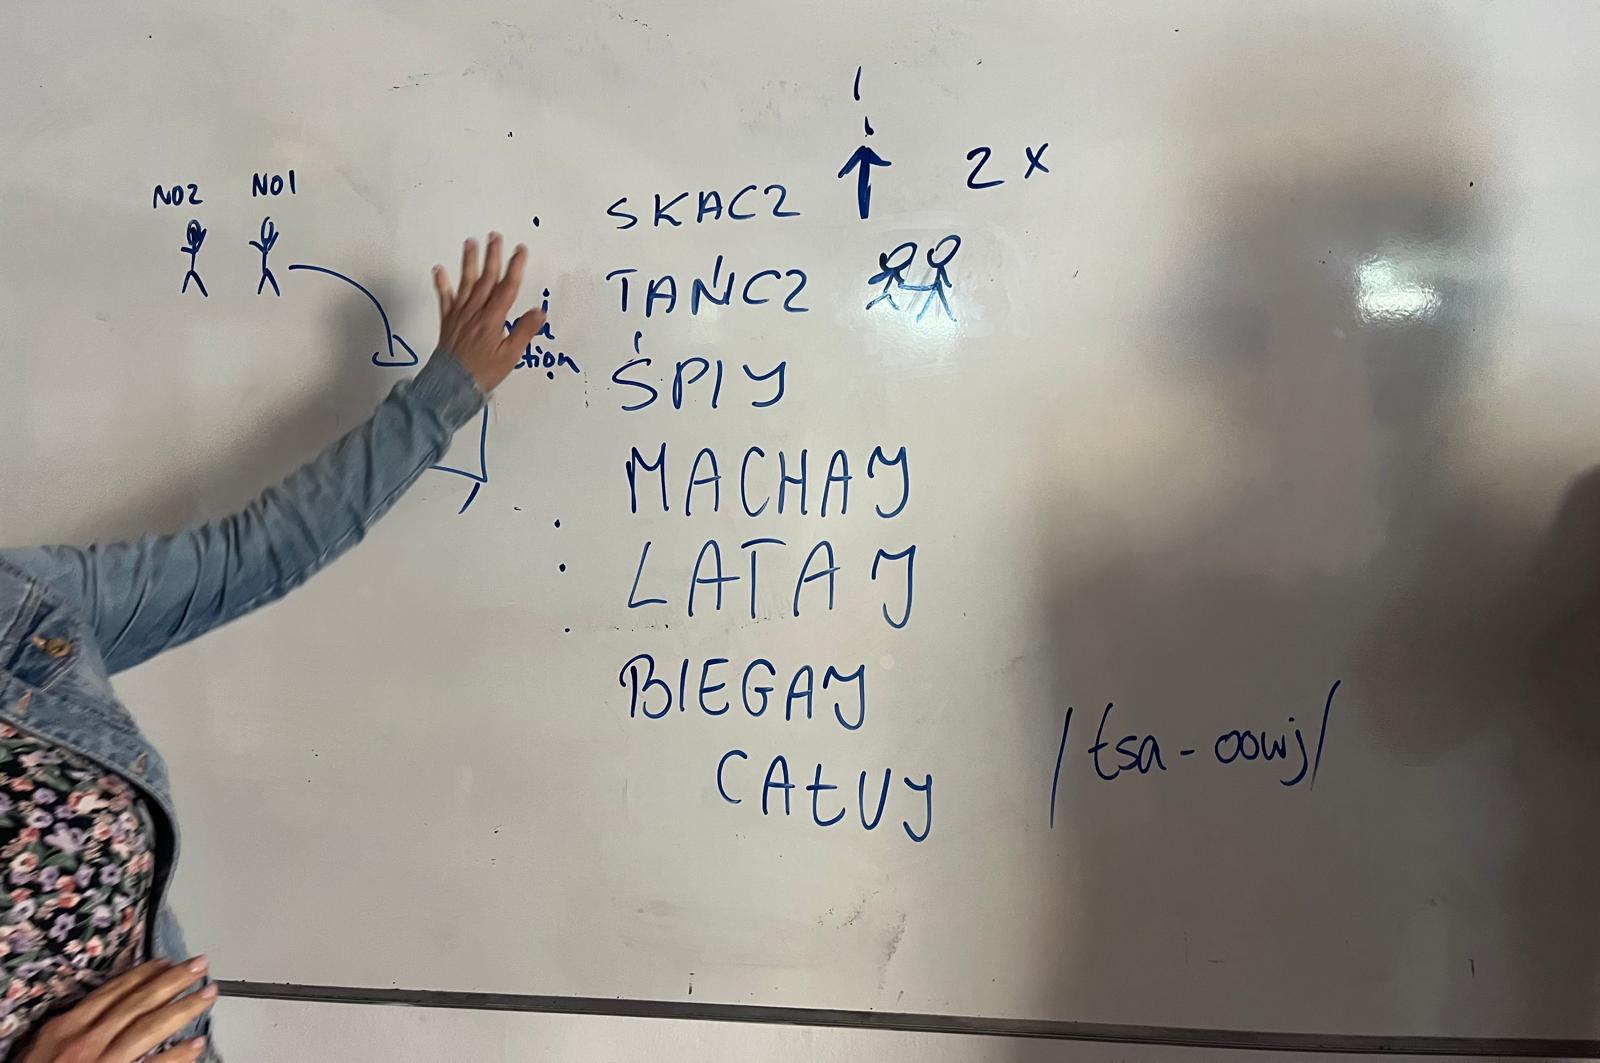 NO2 NO1
2 x
SKACZ
TAŃCZ
ŚPIJ
MACHAJ
LATAJ
BIEGAJ
CAŁUJ /tsa - oowj/